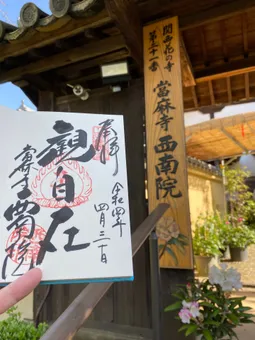 関西花の寺
第二十一番
當麻寺 西南院
奉拝
令和四年
四月二十日
觀自在
當麻寺
西南院